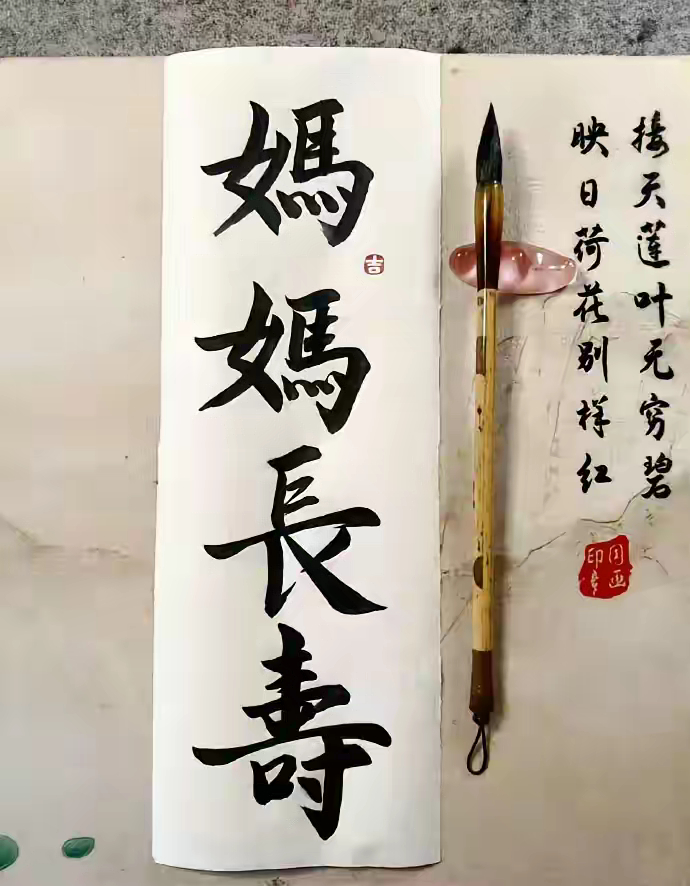 媽媽長壽
吉
接天莲叶无穷碧
映日荷花别样红